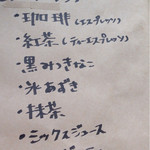 ・珈琲(エスプレッソ)
・紅茶(ティーエスプレッソ)
・黒みつきなこ
・米あずき
・抹茶
・ミックスジュース